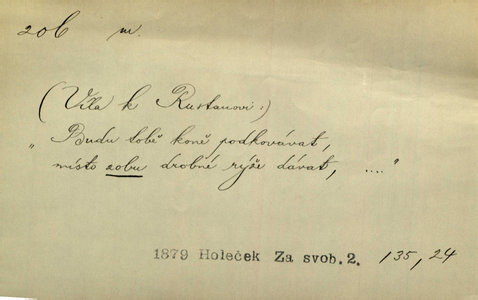 zob m.
(Víla k Rustanovi:)
„Budu tobě koně podkovávat,
místo zobu drobné rýže dávat, ...."
1879 Holeček Za svob. 2. 135, 24